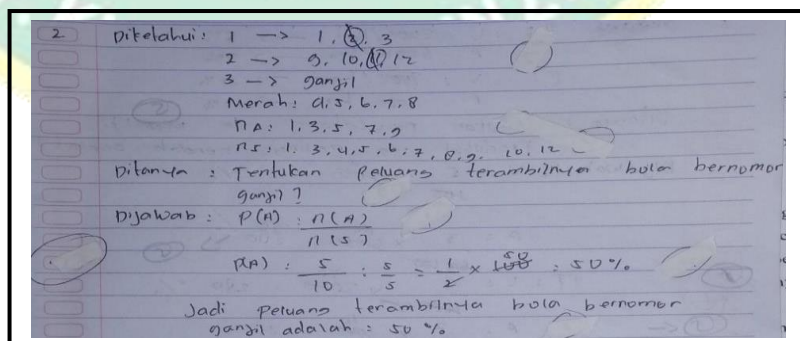 2. Diketahui: 1 -> 1, 2, 3
2 -> 9, 10, 11, 12
3 -> ganjil
Merah: 4, 5, 6, 7, 8
nA: 1, 3, 5, 7, 9
nS: 1, 3, 4, 5, 6, 7, 8, 9, 10, 12
Ditanya : Tentukan peluang terambilnya bola bernomor
ganjil?
Dijawab : P(A) : n(A)/n(S)
P(A) : 5/10 : 5/5 = 1/2 x 100 50 : 50%
Jadi peluang terambilnya bola bernomor
ganjil adalah : 50%